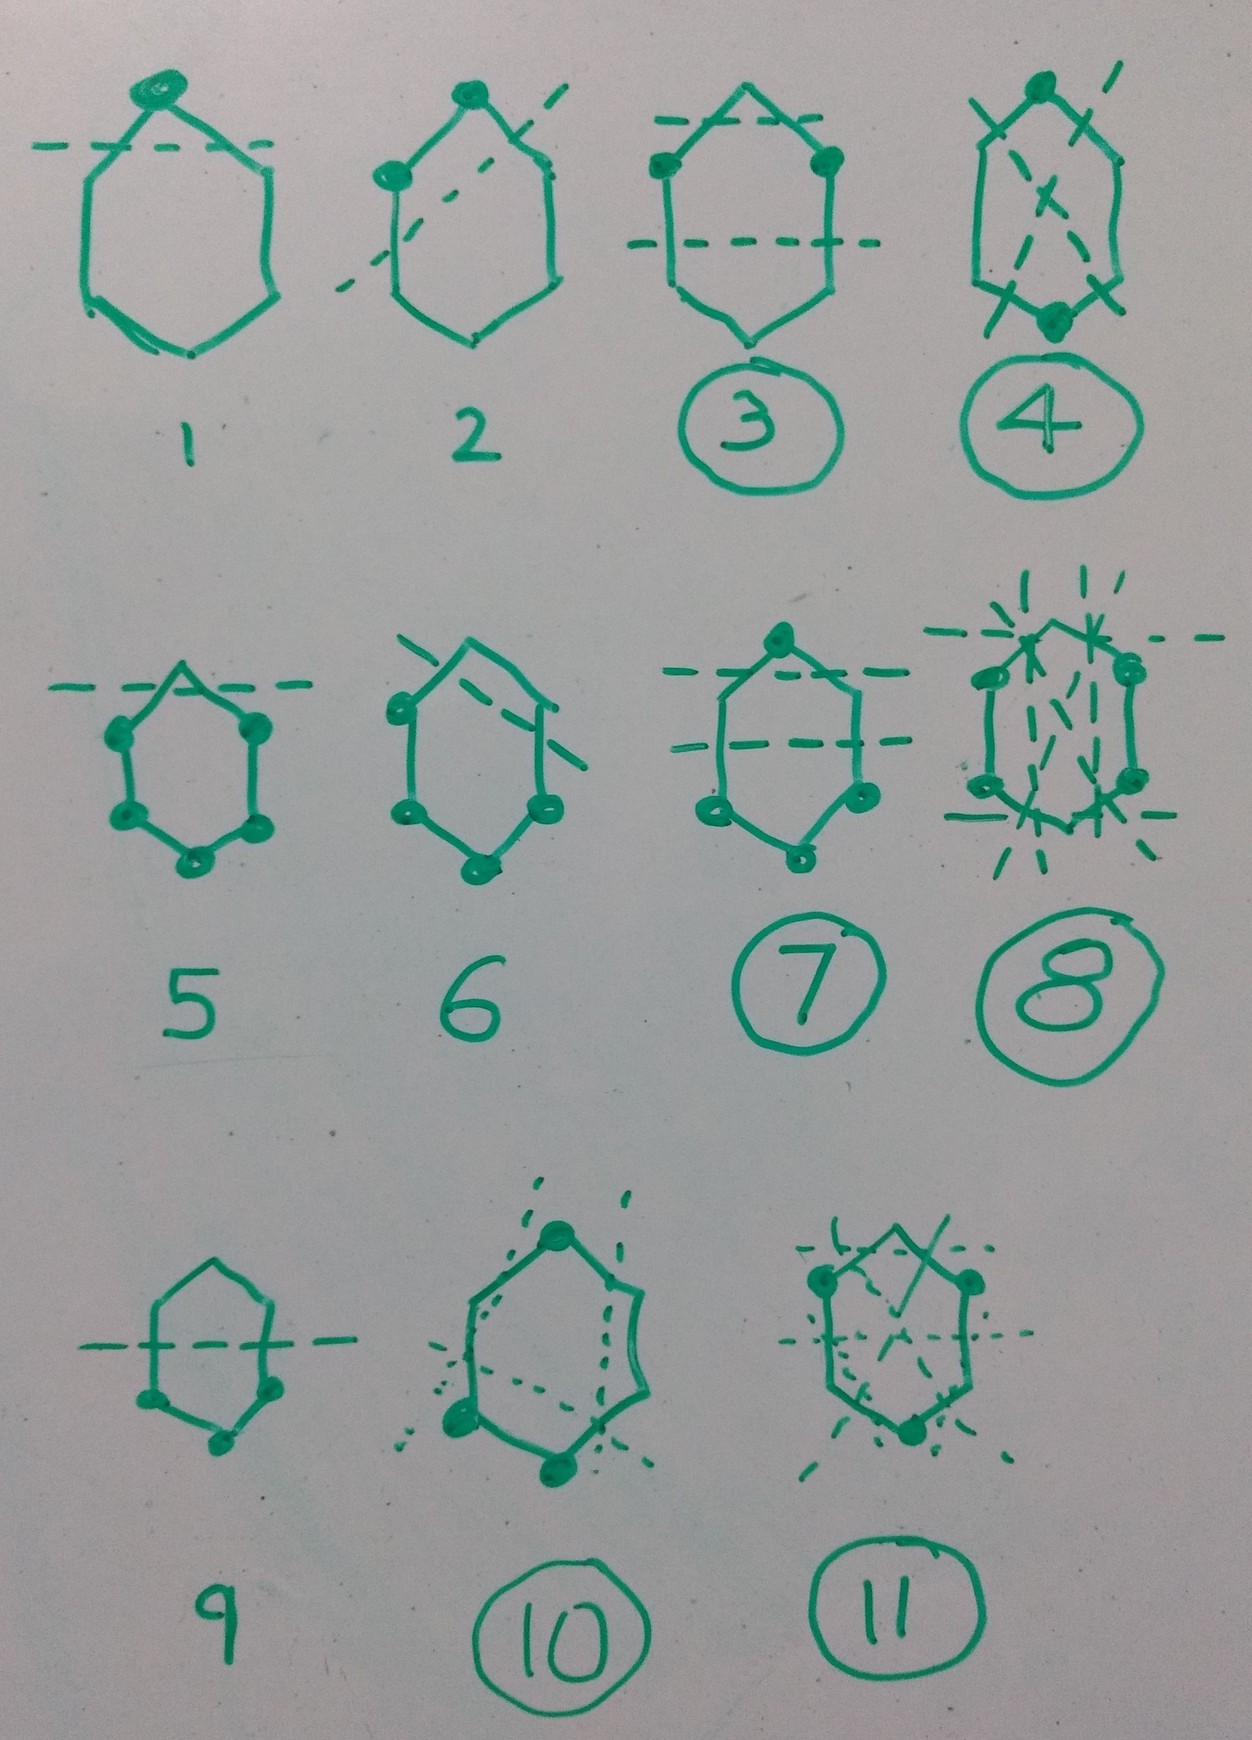 1 2 3 4
5 6 7 8
9 10 11